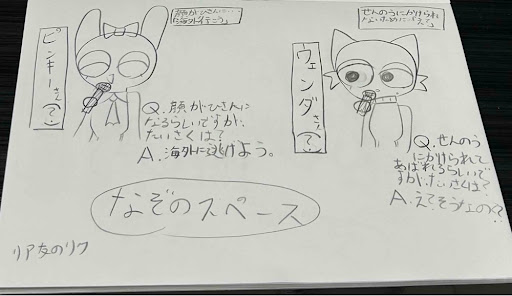 ピンキーさん(?)
顔がひさんに…
海外行こう」
Q.顔がひさんに
なるらしいですが
たいさくは?
A.海外に逃げよう。
ウェンダさん(?)
せんのうにかけられ
Q.せんのう
にかけられて
あばれるらしいで
すが、たいさくは?
A.えてそうなの??
なぞのスペース
リア友のリク